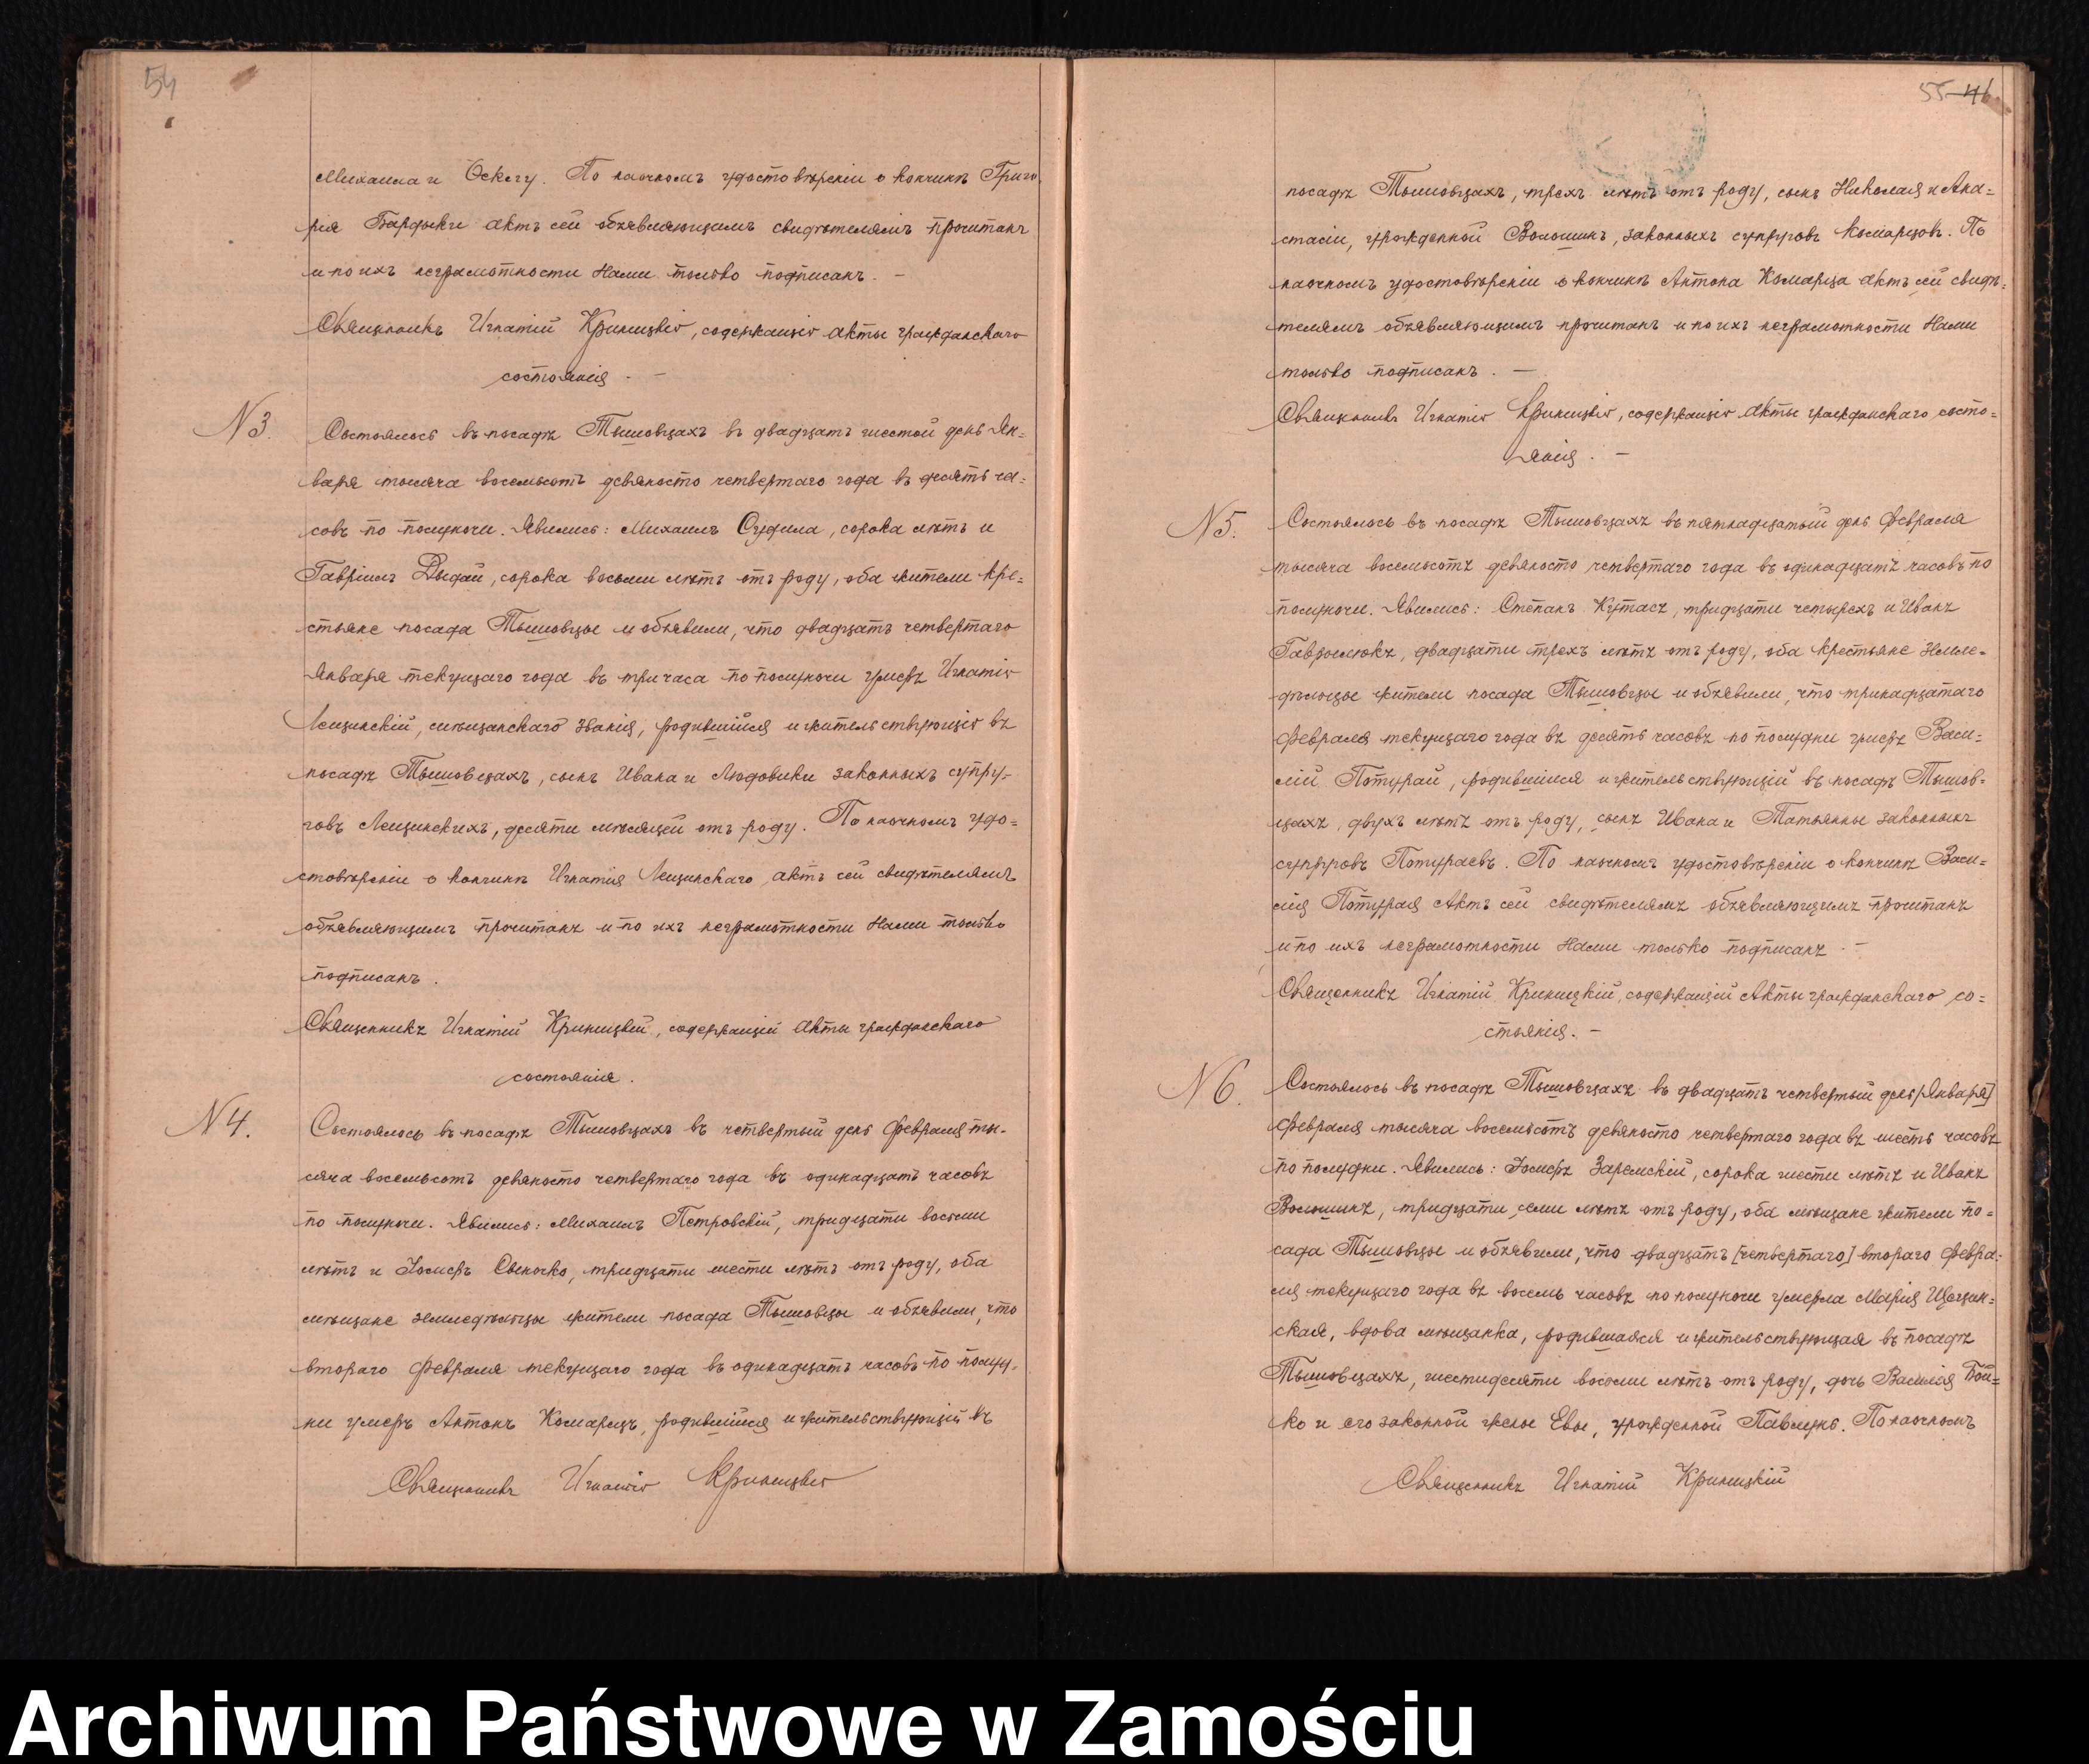 54
Михаила и Өеклу. По наочномъ удостовѣреніи о кончинѣ Григо-
рія Бардыги актъ сей объявляющимъ свидѣтелямъ прочитанъ
и по ихъ неграмотности Нами только подписанъ. –
Священникъ Игнатій Криницкій, содержащій акты гражданскаго
состоянія. –
N 3.
Состоялось въ посадѣ Тышовцахъ въ двадцать шестой день Ян=
варя тысяча восемьсотъ девяносто четвертаго года въ десять ча=
совъ по полуночи. Явились: Михаилъ Судима, сорока лѣтъ и
Гавріилъ Дыдай, сорока восьми лѣтъ отъ роду, оба жители кре=
стьяне посада Тышовцы и объявили, что двадцать четвертаго
Января текущаго года въ три часа по полуночи умеръ Игнатій
Лещинскій, мѣщанскаго званія, родившійся и жительствующій въ
посадѣ Тышовцахъ, сынъ Ивана и Людовики законныхъ супру-
говъ Лещинскихъ, десяти мѣсяцей отъ роду. По наочномъ удо=
стовѣреніи о кончинѣ Игнатія Лещинскаго актъ сей свидѣтелямъ
объявляющимъ прочитанъ и по ихъ неграмотности Нами только
подписанъ.
Священникъ Игнатій Криницкій, содержащій акты гражданскаго
состоянія.
N 4.
Состоялось въ посадѣ Тышовцахъ въ четвертый день Февраля ты-
сяча восемьсотъ девяносто четвертаго года въ одинадцать часовъ
по полуночи. Явились: Михаилъ Петровскій, тридцати восьми
лѣтъ и Іосифъ Сыночко, тридцати шести лѣтъ отъ роду, оба
мѣщане земледѣльцы жители посада Тышовцы и объявили, что
втораго Февраля текущаго года въ одинадцать часовъ по полуд-
ни умеръ Антонъ Комарецъ, родившійся и жительствующій въ
Священникъ Игнатій Криницкій
55 46
посадѣ Тышовцахъ, трехъ лѣтъ отъ роду, сынъ Николая и Ана=
стасіи, урожденной Волошинъ, законныхъ супруговъ Комарцовъ. По
наочномъ удостовѣреніи о кончинѣ Антона Комарца актъ сей свидѣ=
телямъ объявляющимъ прочитанъ и по ихъ неграмотности Нами
только подписанъ. –
Священникъ Игнатій Криницкій, содержащій акты гражданскаго состо=
янія. –
N 5.
Состоялось въ посадѣ Тышовцахъ въ пятнадцатый день Февраля
тысяча восемьсотъ девяносто четвертаго года въ одинадцать часовъ по
полуночи. Явились: Степанъ Кутасъ, тридцати четырехъ и Иванъ
Гаврилюкъ, двадцати трехъ лѣтъ отъ роду, оба крестьяне земле-
дѣльцы жители посада Тышовцы и объявили, что тринадцатаго
Февраля текущаго года въ десять часовъ по полудни умеръ Васи=
лій Потурай, родившійся и жительствующій въ посадѣ Тышов=
цахъ, двухъ лѣтъ отъ роду, сынъ Ивана и Татьянны законныхъ
супруговъ Потураевъ. По наочномъ удостовѣреніи о кончинѣ Васи=
лія Потурая Актъ сей свидѣтелямъ объявляющимъ прочитанъ
и по ихъ неграмотности Нами только подписанъ. –
Священникъ Игнатій Криницкій, содержащій Акты гражданскаго со=
стоянія. –
N 6.
Состоялось въ посадѣ Тышовцахъ въ двадцать четвертый день [Января]
Февраля тысяча восемьсотъ девяносто четвертаго года въ шесть часовъ
по полудни. Явились: Іосифъ Заремскій, сорока шести лѣтъ и Иванъ
Волошинъ, тридцати семи лѣтъ отъ роду, оба мѣщане жители по=
сада Тышовцы и объявили, что двадцать [четвертаго] втораго Февра=
ля текущаго года въ восемь часовъ по полуночи умерла Марія
ская, вдова мѣщанка, родившаяся и жительствующая въ посадѣ
Тышовцахъ, шестидесяти восьми лѣтъ отъ роду, дочь Василія Бой=
ко и его законной жены Евы, урожденной Павлукъ. По наочномъ
Священникъ Игнатій Криницкій
Archiwum Państwowe w Zamościu